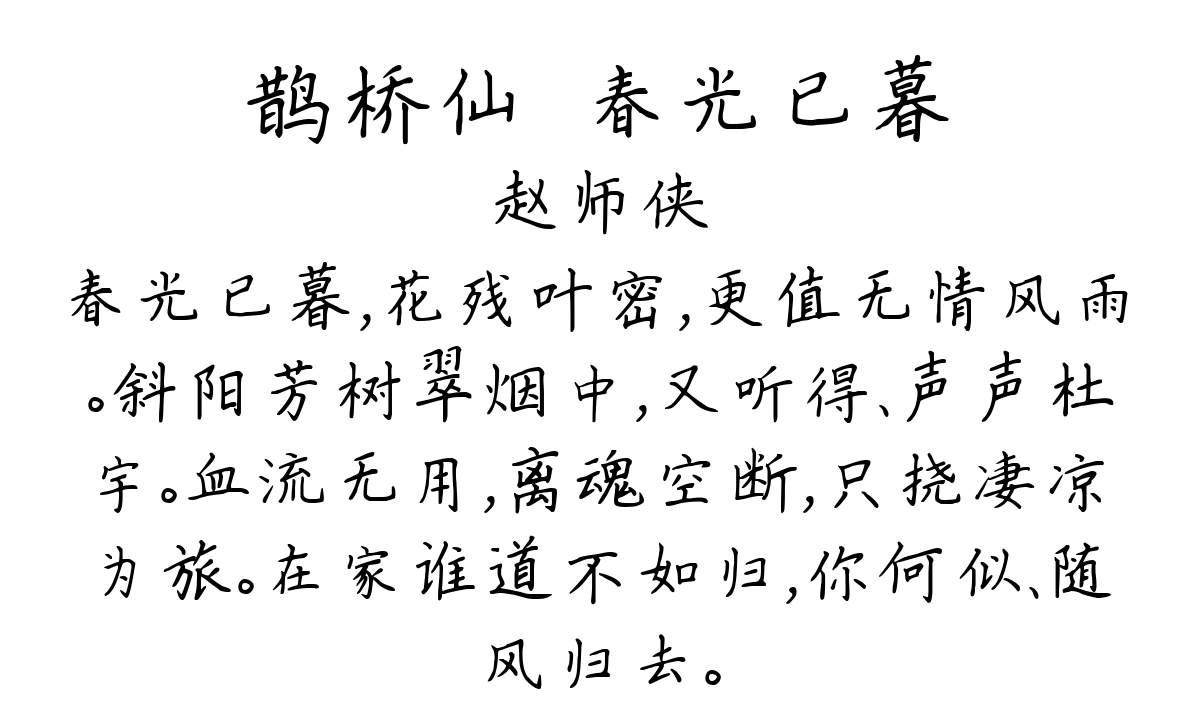 鹊桥仙 春光已暮
赵师侠
春光已暮,花残叶密,更值无情风雨
。斜阳芳树翠烟中,又听得、声声杜
宇。血流无用,离魂空断,只挠凄凉
为旅。在家谁道不如归,你何似、随
风归去。